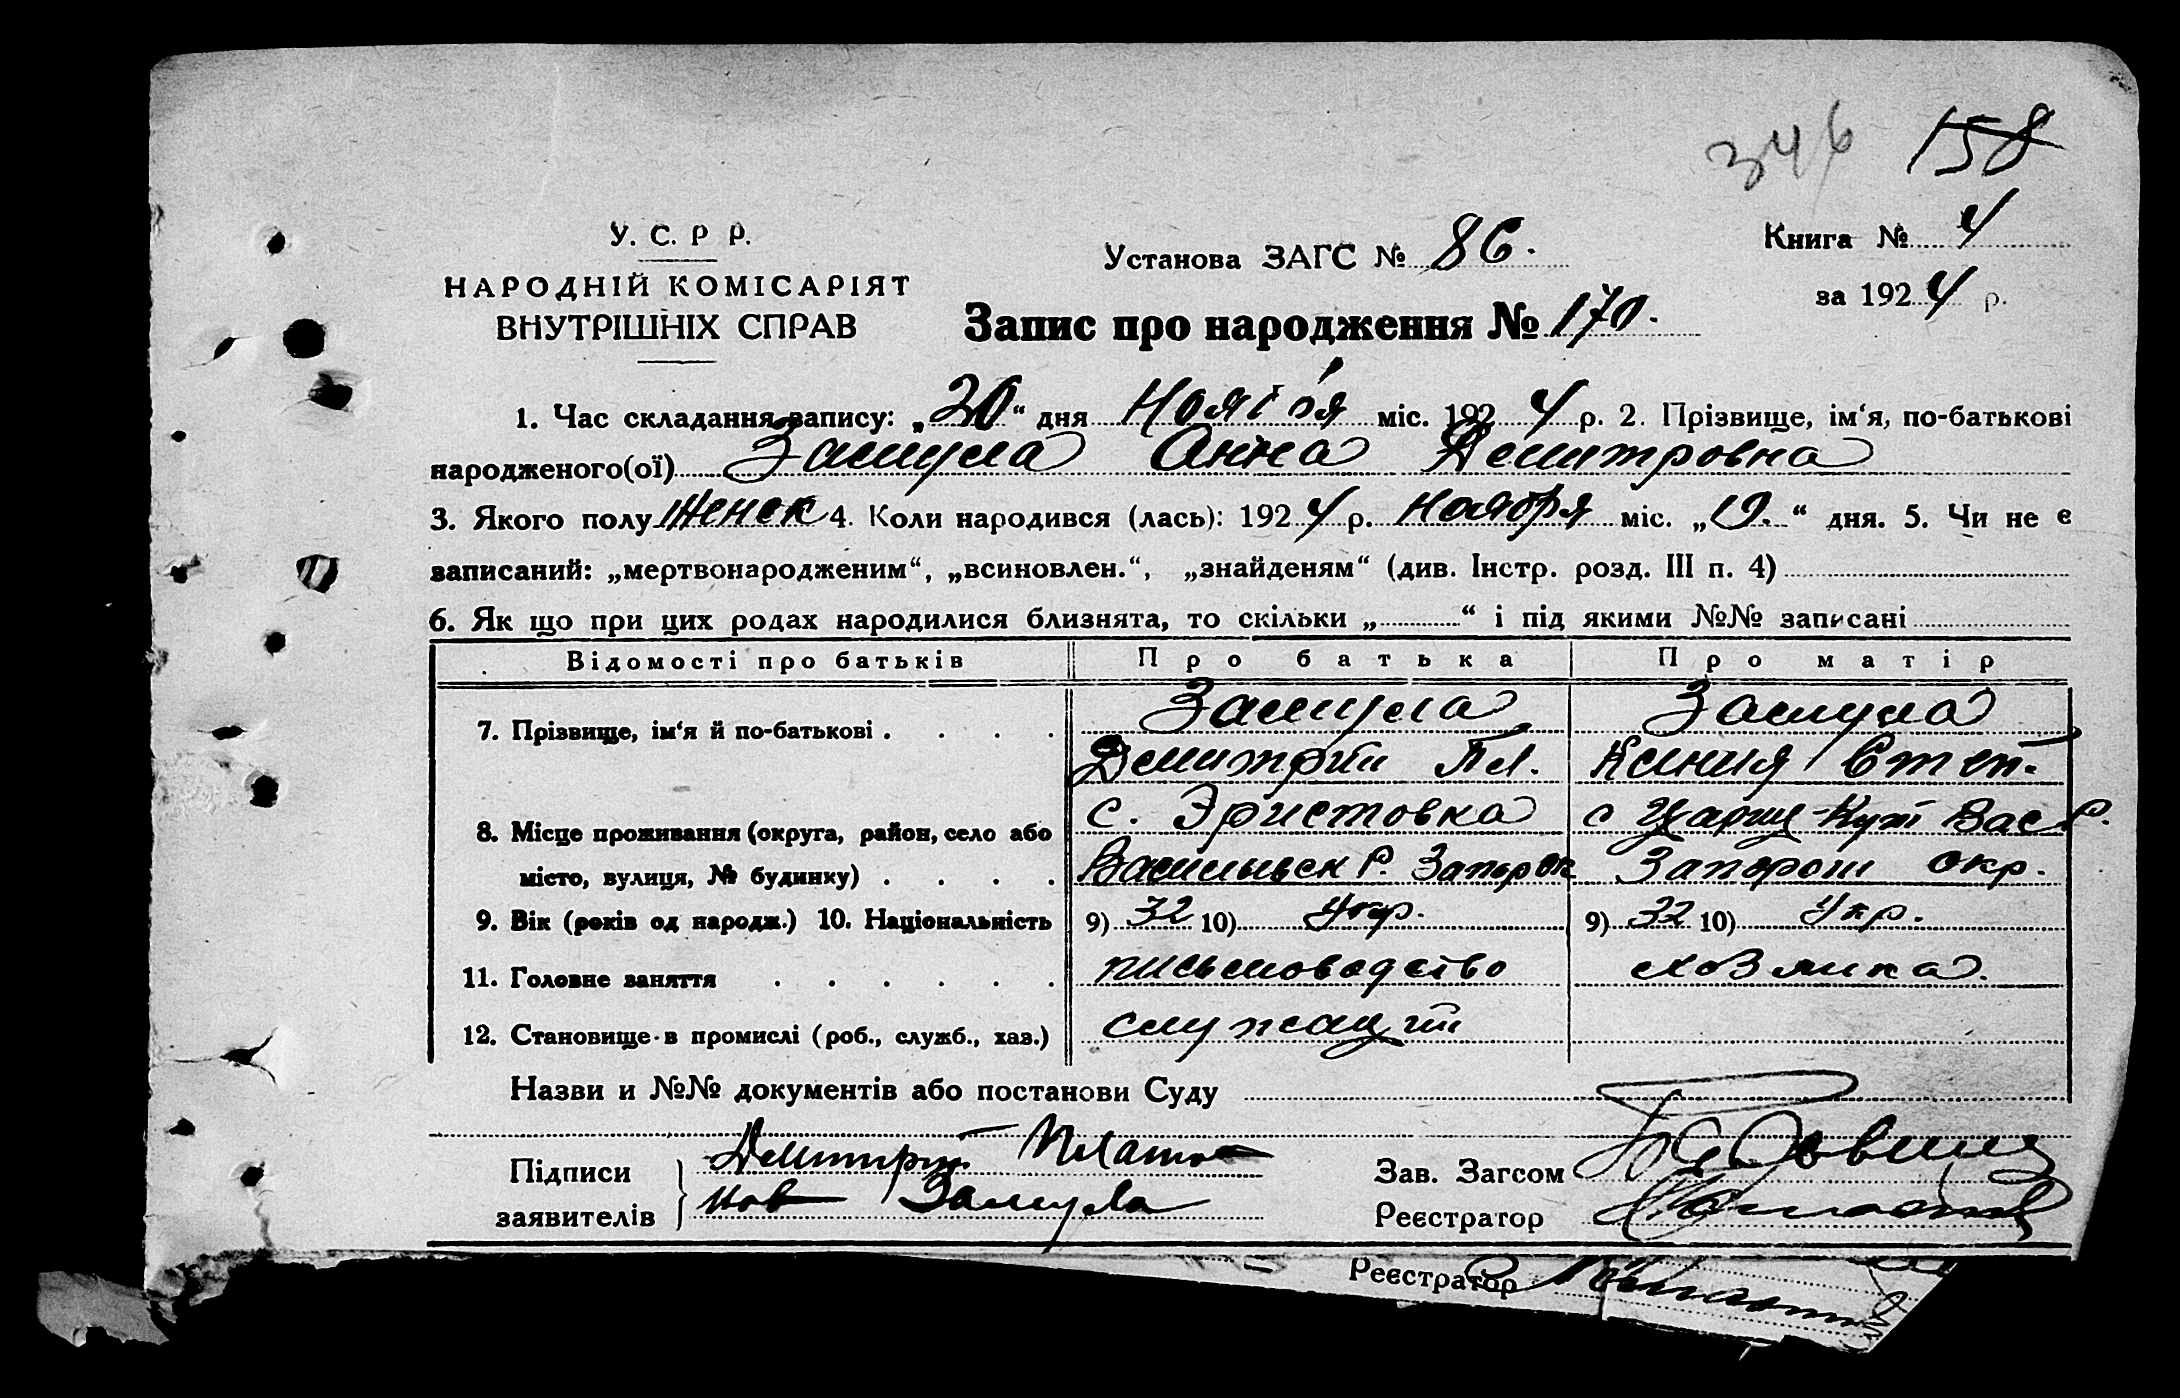 346 158
У. С. Р Р.
НАРОДНІЙ КОМІСАРІЯТ
ВНУТРІШНІХ СПРАВ
Установа ЗАГС № 86.
Книга № 4
за 1924 р.
Запис про народження № 170.
1. Час складання запису: „20“ дня Ноября міс. 1924 р. 2. Прізвище, ім‘я, по-батькові
народженого(ої) Замула Анна Демитровна
3. Якого полу Женск 4. Коли народився (лась): 1924 р. Ноября міс. „19.“ дня. 5. Чи не є
записаний: „мертвонародженим“, „всиновлен.“, „знайденям“ (див. Інстр. розд. III п. 4)
6. Як що при цих родах народилися близнята, то скільки „ “ і під якими №№ записані
Відомості про батьків Про батька Про матір
7. Прізвище, ім‘я й по-батькові . . . . Замула Замула
Демитрий Пл. Ксения Степ.
8. Місце проживання (округа, район, село або с. Эристовка с Цариц-Кут Вас Р.
місто, вулиця, № будинку) . . . . Васильевск Р. Запорож Запорож окр.
9. Вік (років од народж.) 10. Національність 9) 32 10) Укр. 9) 32 10) Укр.
11. Головне заняття . . . . . . письмоводство хозяйка.
12. Становище в промислі (роб., служб., хаз.) служащий
Назви и №№ документів або постанови Суду
Підписи Демитрий Плато
заявителів нов Замула
Зав. Загсом
Реєстратор
Реєстратор